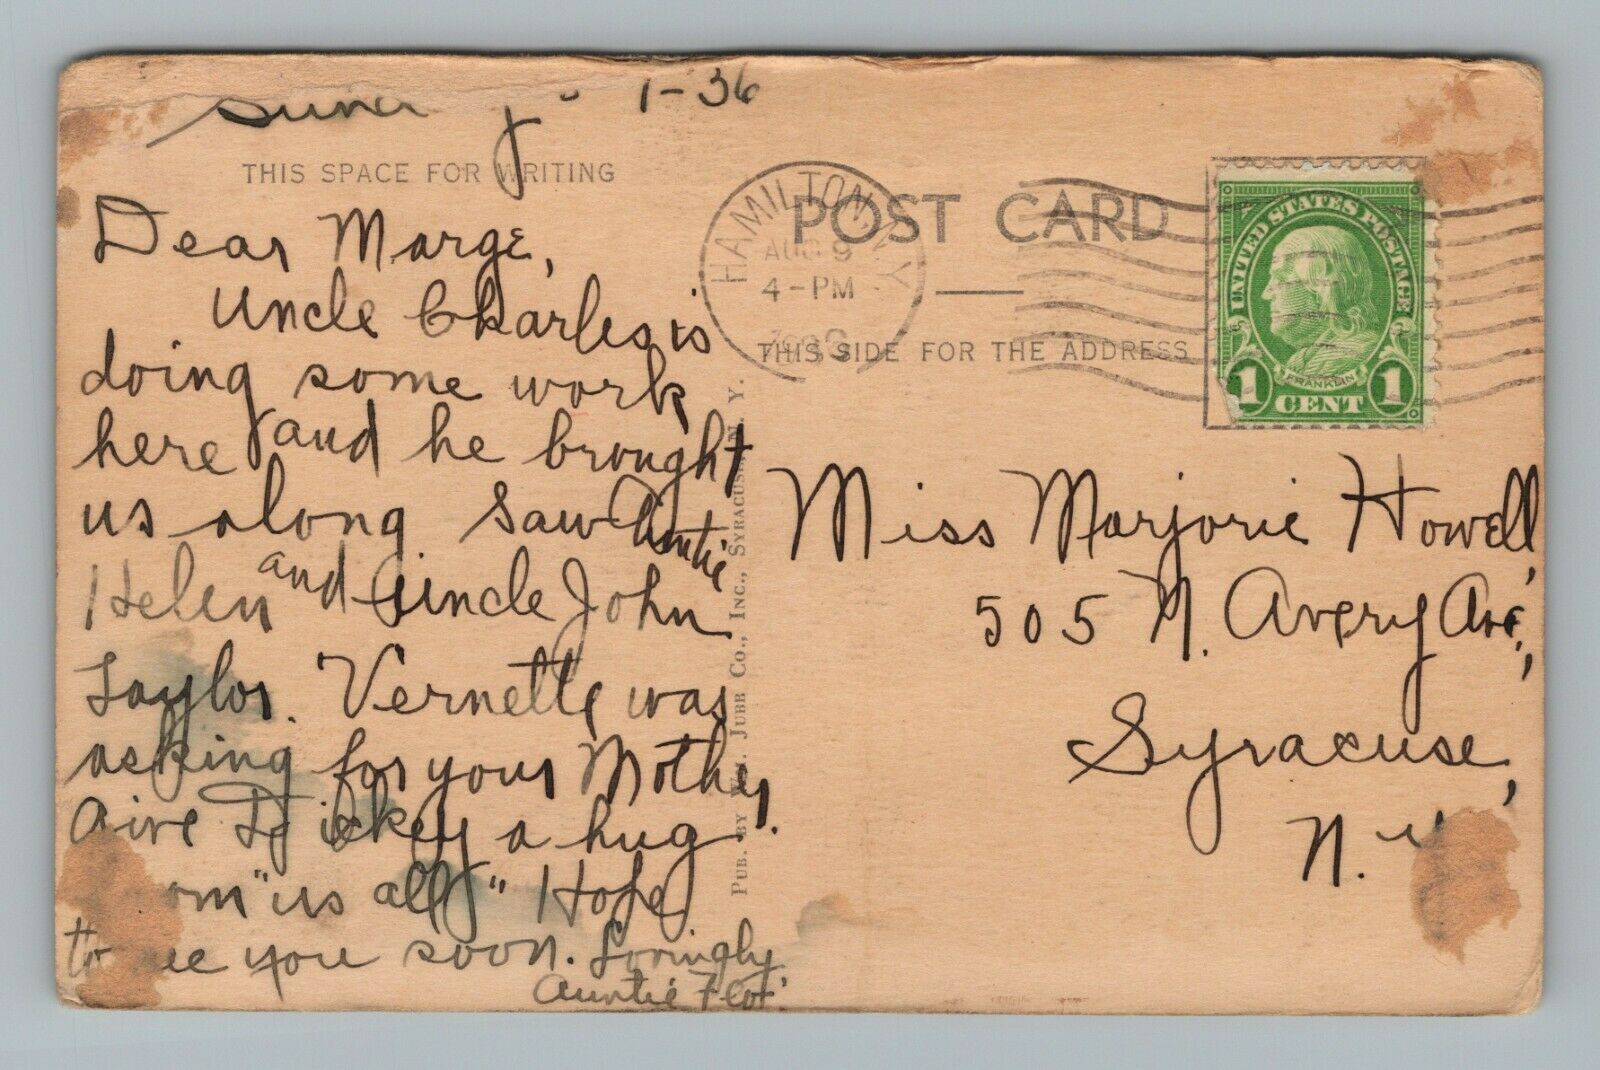 1-36
THIS SPACE FOR WRITING
Dear Marge,
Uncle Charles is
doing some work
here and he brought
us along. Saw Auntie
Helen and Uncle John
Taylor. Vernette was
asking for your Mother.
Give Dickey a hug
"us all" Hope
you soon. Lovingly
Auntie Flo
PUB. BY JUBB CO., INC., SYRACUSE, N. Y.
HAMILTON, N.Y.
AUG 9
4-PM
POST CARD
THIS SIDE FOR THE ADDRESS
UNITED STATES POSTAGE
FRANKLIN
1 CENT 1
Miss Marjorie Howell,
505 N. Avery Ave.,
Syracuse,
N.